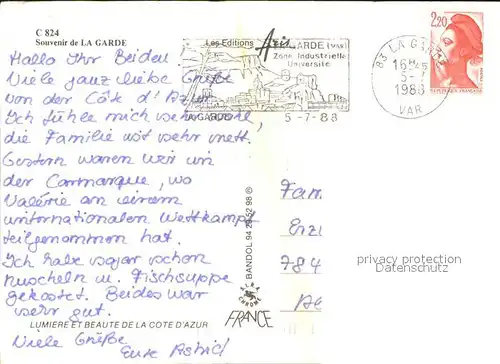 C 824
Souvenir de LA GARDE
Hallo Ihr Beiden
Viele ganz liebe Grüße
von der Côte d'Azur
Ich fühle mich sehr wohl,
die Familie ist sehr nett.
Gestern waren wir in
der Carmarque, wo
Valérie an einem
internationalen Wettkampf
teilgenommen hat.
Ich habe sogar schon
Muscheln u. Fischsuppe
gekostet. Beides war
sehr gut.
LUMIERE ET BEAUTE DE LA COTE D'AZUR
Viele Grüße
Eure Astrid
Les Editions
GARDE (VAR)
Zone Industrielle
Université
LA GARDE
5-7-88
83 LA GARDE
16H
5-7
1988
VAR
2,20
BANDOL 94 29 52 98 ®
FRANCE
Fam
784
privacy protection
Datenschutz